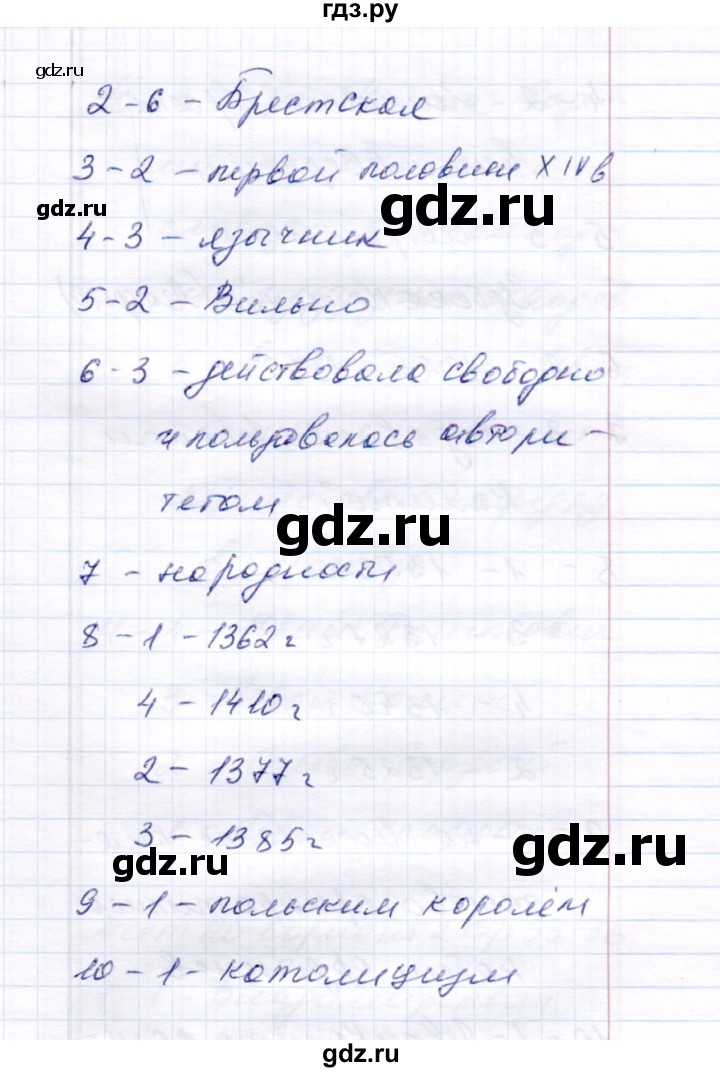 гдз.ру
gdz.ru
2-6 - Брестская
3-2 - первой половине XIV в
gdz.ru
gdz.ru
4-3 - язычник
5-2 - Вильно
6-3 - действовала свободно
и пользовалась автори-
тетом
gdz.ru
7 - народности
8-1-1362 г
4-1410 г
2-1377 г
3-1385 г
gdz.ru
gdz.ru
9-1-польским королём
10-1-католицизм
gdz.ru